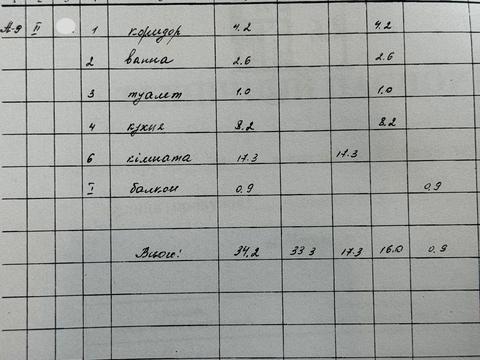 А-9 II 1 коридор 4.2 4.2
2 ванна 2.6 2.6
3 туалет 1.0 1.0
4 кухня 8.2 8.2
6 кімната 17.3 17.3
I балкон 0.9 0.9
Всього: 34.2 33.3 17.3 16.0 0.9